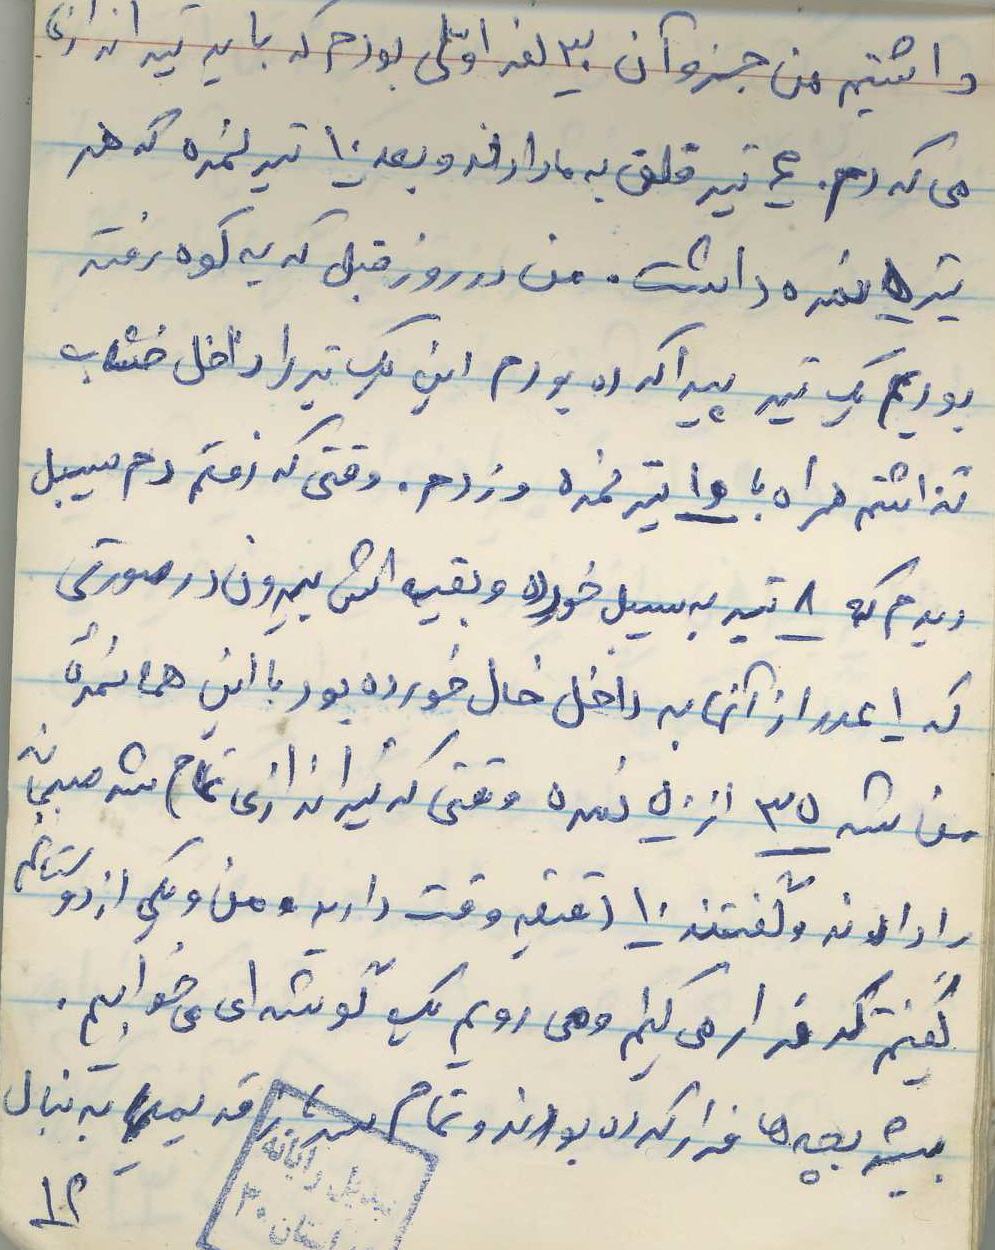 داشتیم من جزو آن ۳۰ نفر اوّلی بودم که باید تیراندازی
می کردم. ۴ تیر قلق به ما دادند و بعد ۱۰ تیر نمره که هر
تیر ۵ نمره داشت. من در روز قبل که به کوه رفته
بودیم یک تیر پیدا کرده بودم این یک تیر را داخل خشاب
گذاشتم همراه با ۱۰ تیر نمره و زدم. وقتی که رفتم دم سیبل
دیدم که ۸ تیر به سیبل خورده و بقیه اش بیرون در صورتی
که ۱ عدد از آنها به داخل خال خورده بود با این همه نمره
من شد ۳۵ از ۵۰ نمره وقتی که تیراندازی تمام شد صبحانه
را دادند و گفتند ۱۰ دقیقه وقت دارید و من و یکی از دوستانم
گفتیم که فرار می کنیم و می رویم یک گوشه ای می خوابیم.
بیشتر بچه ها فرار کرده بودند و تمام به دنبال
۱۲
تبدیل رایانه
دستان ۳۰